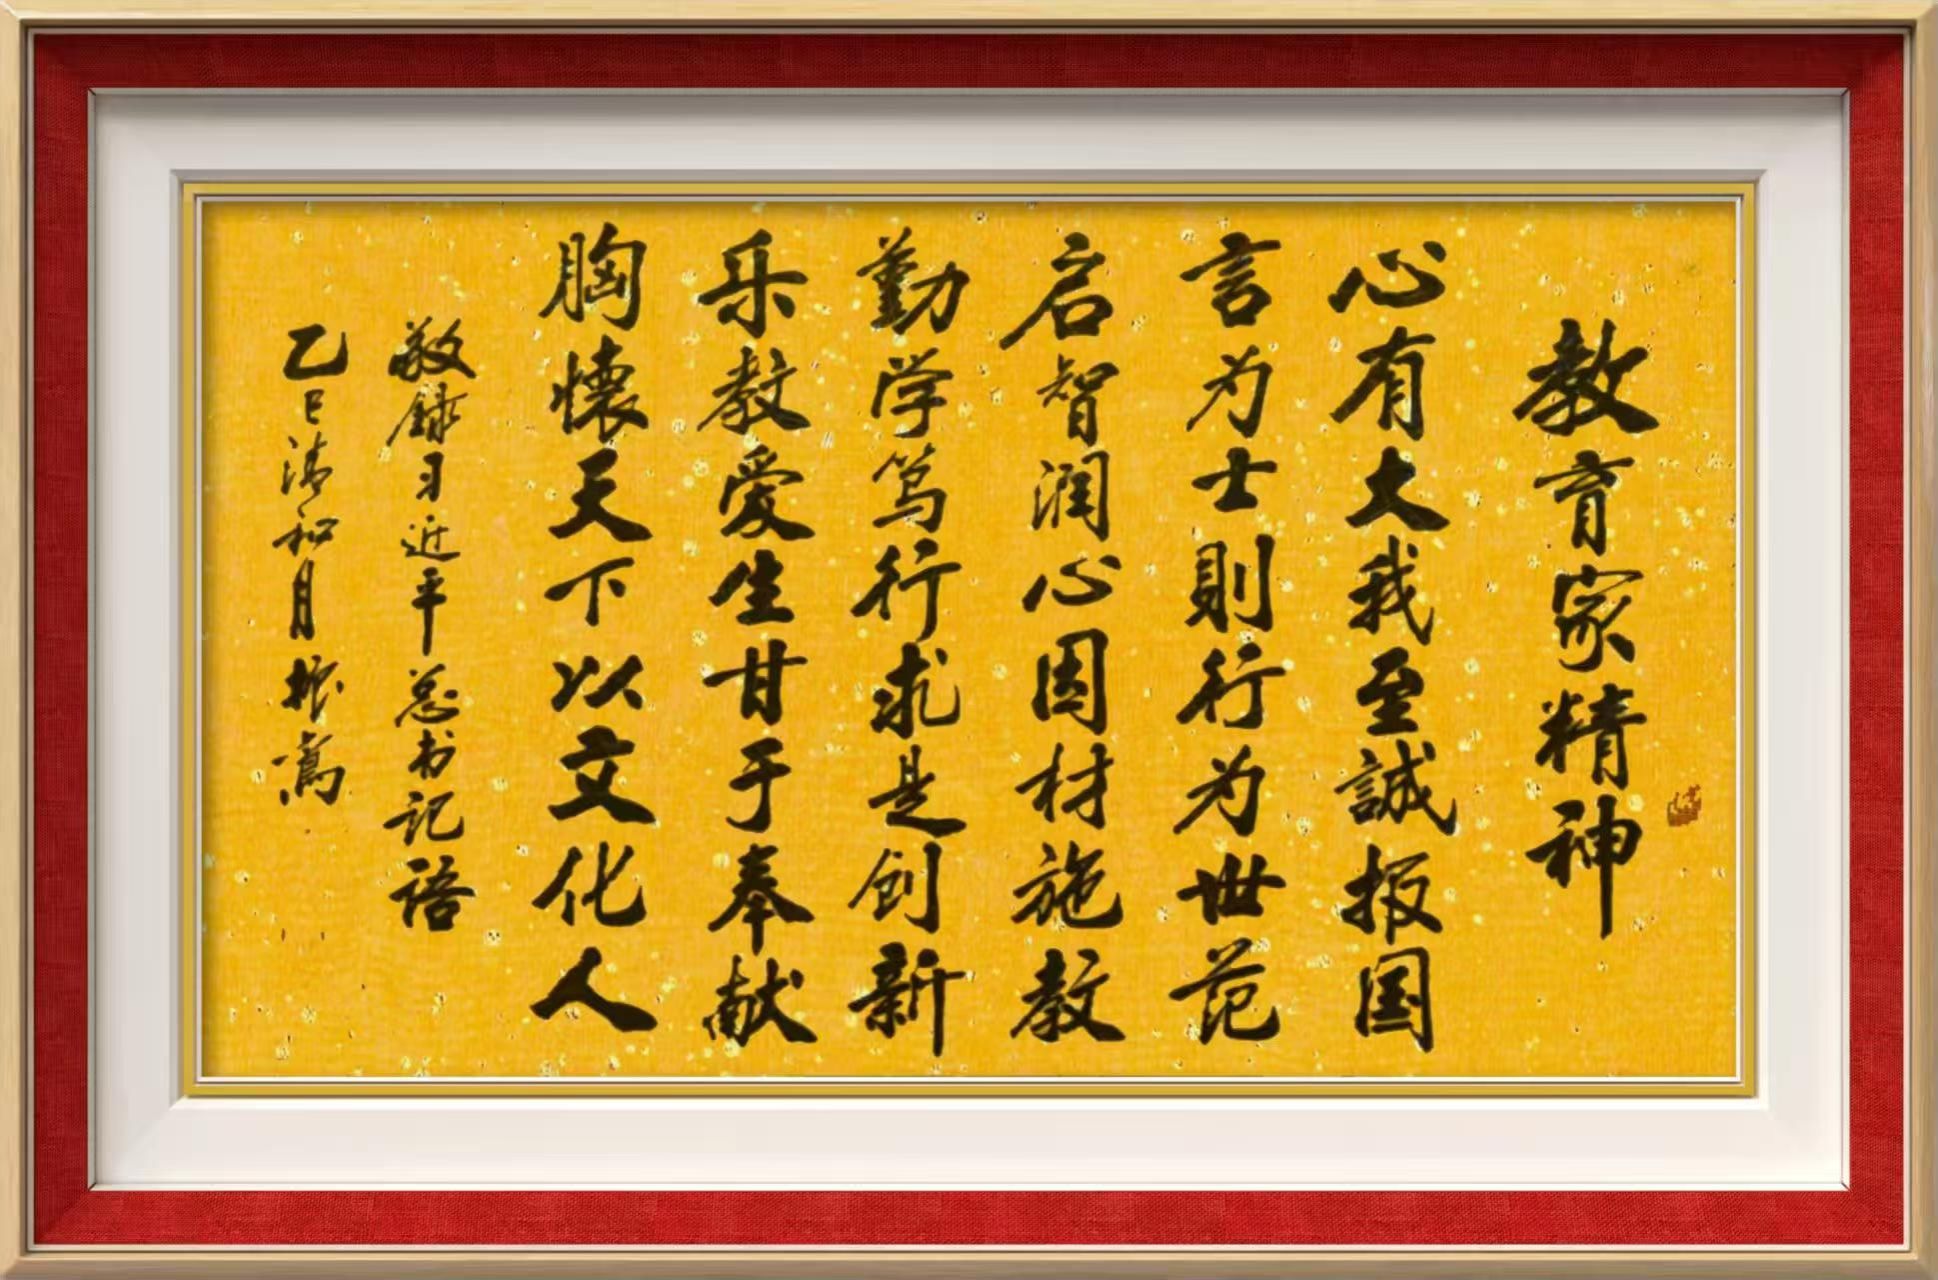 教育家精神
心有大我至誠报国
言为士則行为世范
启智润心因材施教
勤学笃行求是创新
乐教爱生甘于奉献
胸懷天下以文化人
敬錄习近平总书记语
乙巳清和月振嵩